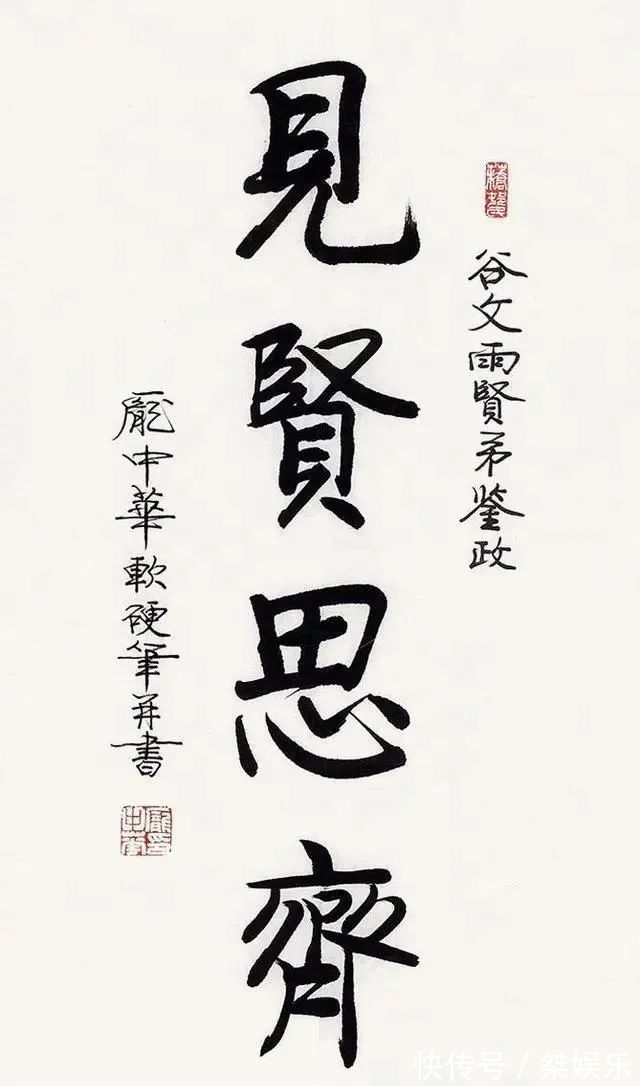 谷文雨賢弟鉴政
見賢思齊
龐中華軟硬筆并書
快传号／桀娱乐